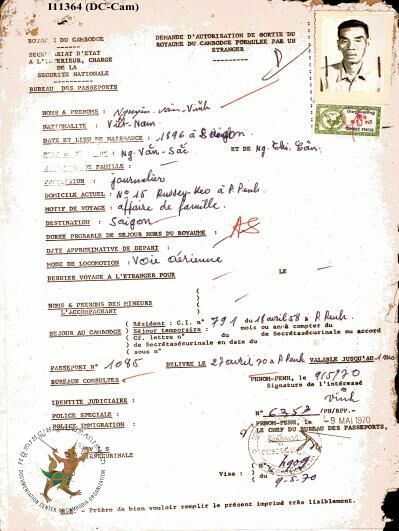 I11364 (DC-Cam)
ROYAUME DU CAMBODGE
SECRETARIAT D'ETAT
A L'INTERIEUR, CHARGE
DE LA
SECURITE NATIONALE
BUREAU DES PASSEPORTS
DEMANDE D'AUTORISATION DE SORTIE DU
ROYAUME DU CAMBODGE FORMULEE PAR UN
ETRANGER
NOMS & PRENOMS : Nguyễn Văn Vinh
NATIONALITE : Việt-Nam
DATE ET LIEU DE NAISSANCE : 1896 à Saigon
Ng. Văn Sắc. ET DE Ng. Thị
FAMILLE :
PROFESSION : journalier
DOMICILE ACTUEL : N° 15 Russey-Keo à P. Penh.
MOTIF DE VOYAGE : affaire de famille.
DESTINATION : Saigon
DUREE PROBABLE DE SEJOUR HORS DU ROYAUME :
DATE APPROXIMATIVE DE DEPART :
MODE DE LOCOMOTION : Voie aérienne
DERNIER VOYAGE A L'ETRANGER POUR LE
NOMS & PRENOMS DES MINEURS
L'ACCOMPAGNANT
SEJOUR AU CAMBODGE
Résident : C.I. n° 791 du 18 avril 58 à P. Penh.
Séjour temporaire : mois ou an à compter du
Cf. lettre n° du Secrétasérieate ou accord
de Secrétasédurienale en date du
sous n°
PASSEPORT N° 1095 DELIVRE LE 27 avril 70 à P. Penh VALABLE JUSQU'AU 1 mo
BUREAUX CONSULTES
PHNOM-PENH, le 9/5/70
Signature de l'intéressé
Vinh
IDENTITE JUDICIAIRE :
POLICE SPECIALE :
POLICE IMMIGRATION :
N° 6252 /PH/BPP.-
PHNOM-PENH, le -9 MAI 1970
LE CHEF DU BUREAU DES PASSEPORTS,
Visa :
N° 4909
du 9-5-70
DOCUMENTATION CENTER OF CAMBODIA ORGANIZATION
Prière de bien vouloir remplir le présent imprimé très lisiblement.